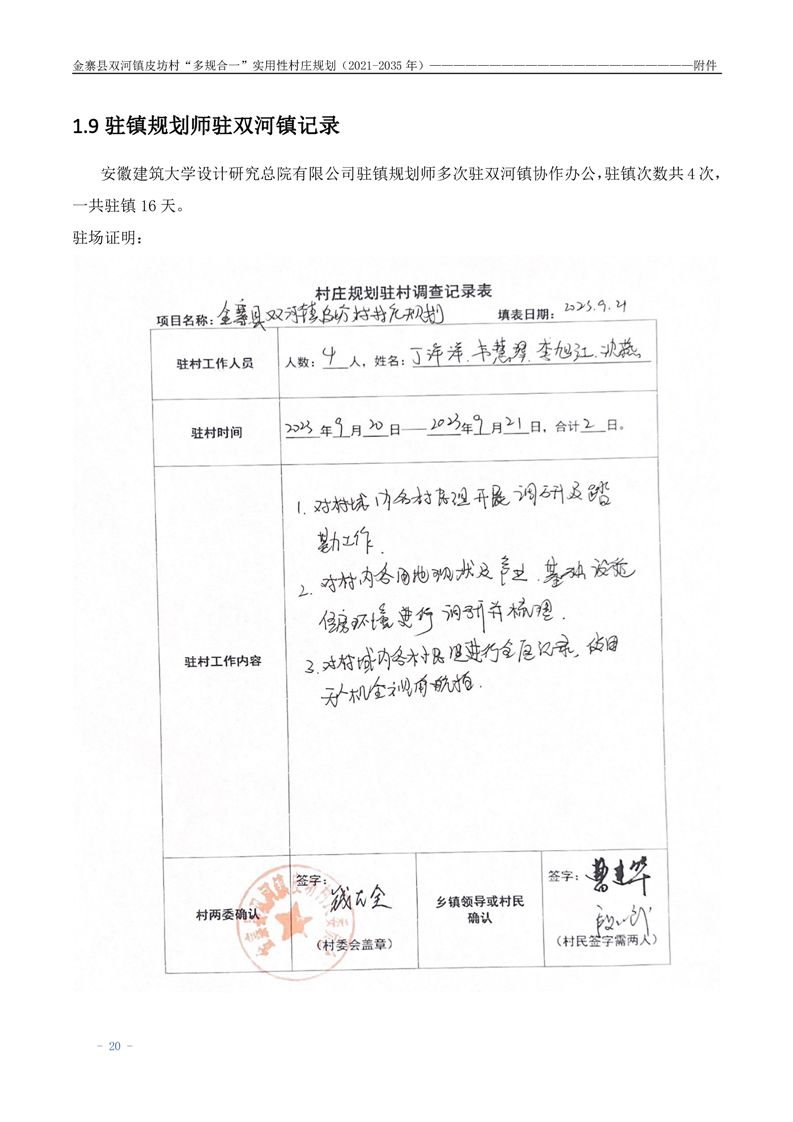 金寨县双河镇皮坊村“多规合一”实用性村庄规划（2021-2035 年）——————————————————————附件
1.9 驻镇规划师驻双河镇记录
安徽建筑大学设计研究总院有限公司驻镇规划师多次驻双河镇协作办公，驻镇次数共 4 次，
一共驻镇 16 天。
驻场证明：
村庄规划驻村调查记录表
项目名称：金寨县双河镇皮坊村村庄规划 填表日期：2023.9.21
驻村工作人员 人数：4人，姓名：丁洋洋、韦慧翠、李旭江、沈燕
驻村时间 2023年9月20日——2023年9月21日，合计2日。
1. 对村域内各村民组开展调研及踏
勘工作.
2. 对村内各用地现状及产业、基础设施
住房环境进行调研并梳理.
驻村工作内容
3. 对村域内各村民组进行全面记录，使用
无人机全域航拍.
签字： 签字：曹建华
村两委确认 乡镇领导或村民
确认
（村委会盖章） （村民签字需两人）
- 20 -